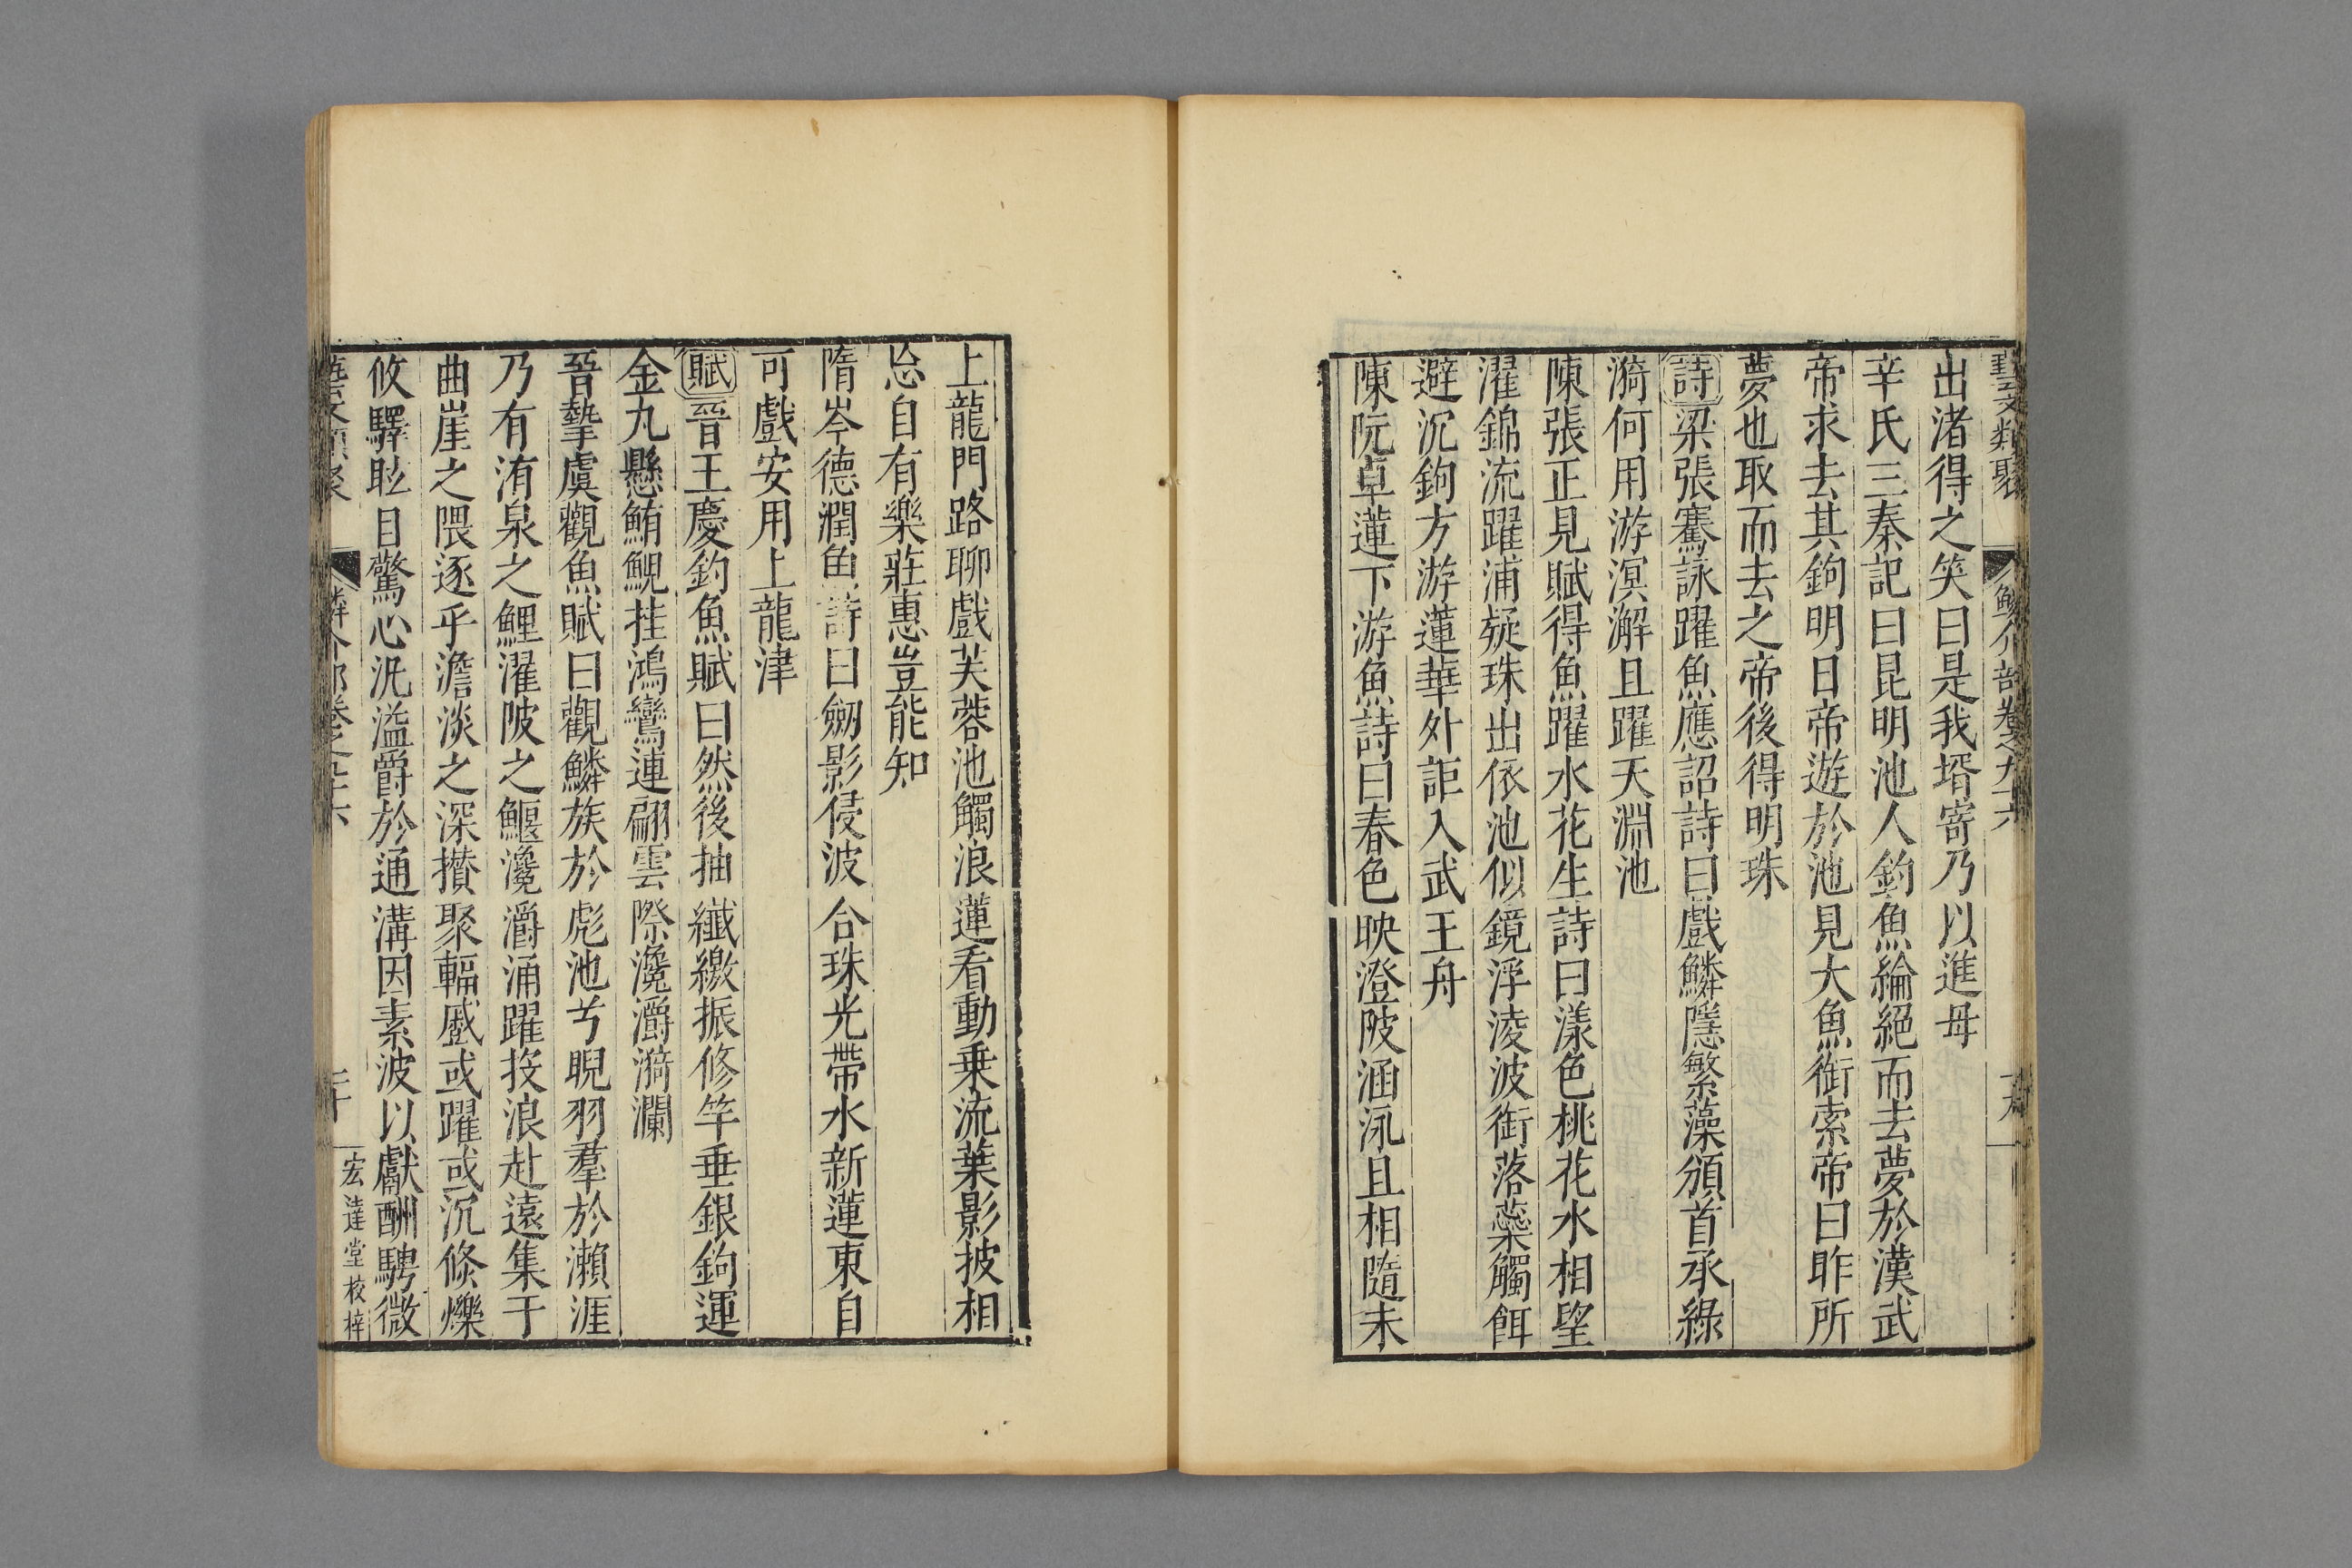 藝文類聚 鱗介部卷之九十六 十九
出渚得之笑曰是我壻寄乃以進母
辛氏三秦記曰昆明池人釣魚綸絕而去夢於漢武
帝求去其鉤明日帝遊於池見大魚銜索帝曰昨所
夢也取而去之帝後得明珠
詩梁張騫詠躍魚應詔詩曰戲鱗隱繁藻頒首承綠
漪何用游溟澥且躍天淵池
陳張正見賦得魚躍水花生詩曰漾色桃花水相望
濯錦流躍浦疑珠出依池似鏡浮淩波銜落蘂觸餌
避沉鉤方游蓮華外詎入武王舟
陳阮卓蓮下游魚詩曰春色映澄陂涵泳且相隨未
上龍門路聊戲芙蓉池觸浪蓮看動乗流葉影披相
忩自有樂莊惠豈能知
隋岑德潤魚詩曰劒影侵波合珠光帶水新蓮東自
可戲安用上龍津
賦晉王慶釣魚賦曰然後抽纖繳振修竿垂銀鉤運
金丸懸鮪鯢挂鴻鸞連翩雲際瀺灂漪瀾
晉摯虞觀魚賦曰觀鱗族於彪池兮睨羽羣於瀨涯
乃有洧泉之鯉濯陂之鰋瀺灂涌躍挍浪赴遠集于
曲崖之隈逐乎澹淡之深攢聚輻蹙或躍或沉倏爍
攸驛眩目驚心汎溢爵於通溝因素波以獻酬騁微
藝文類聚 鱗介部卷之九十六 二十 宏達堂校梓